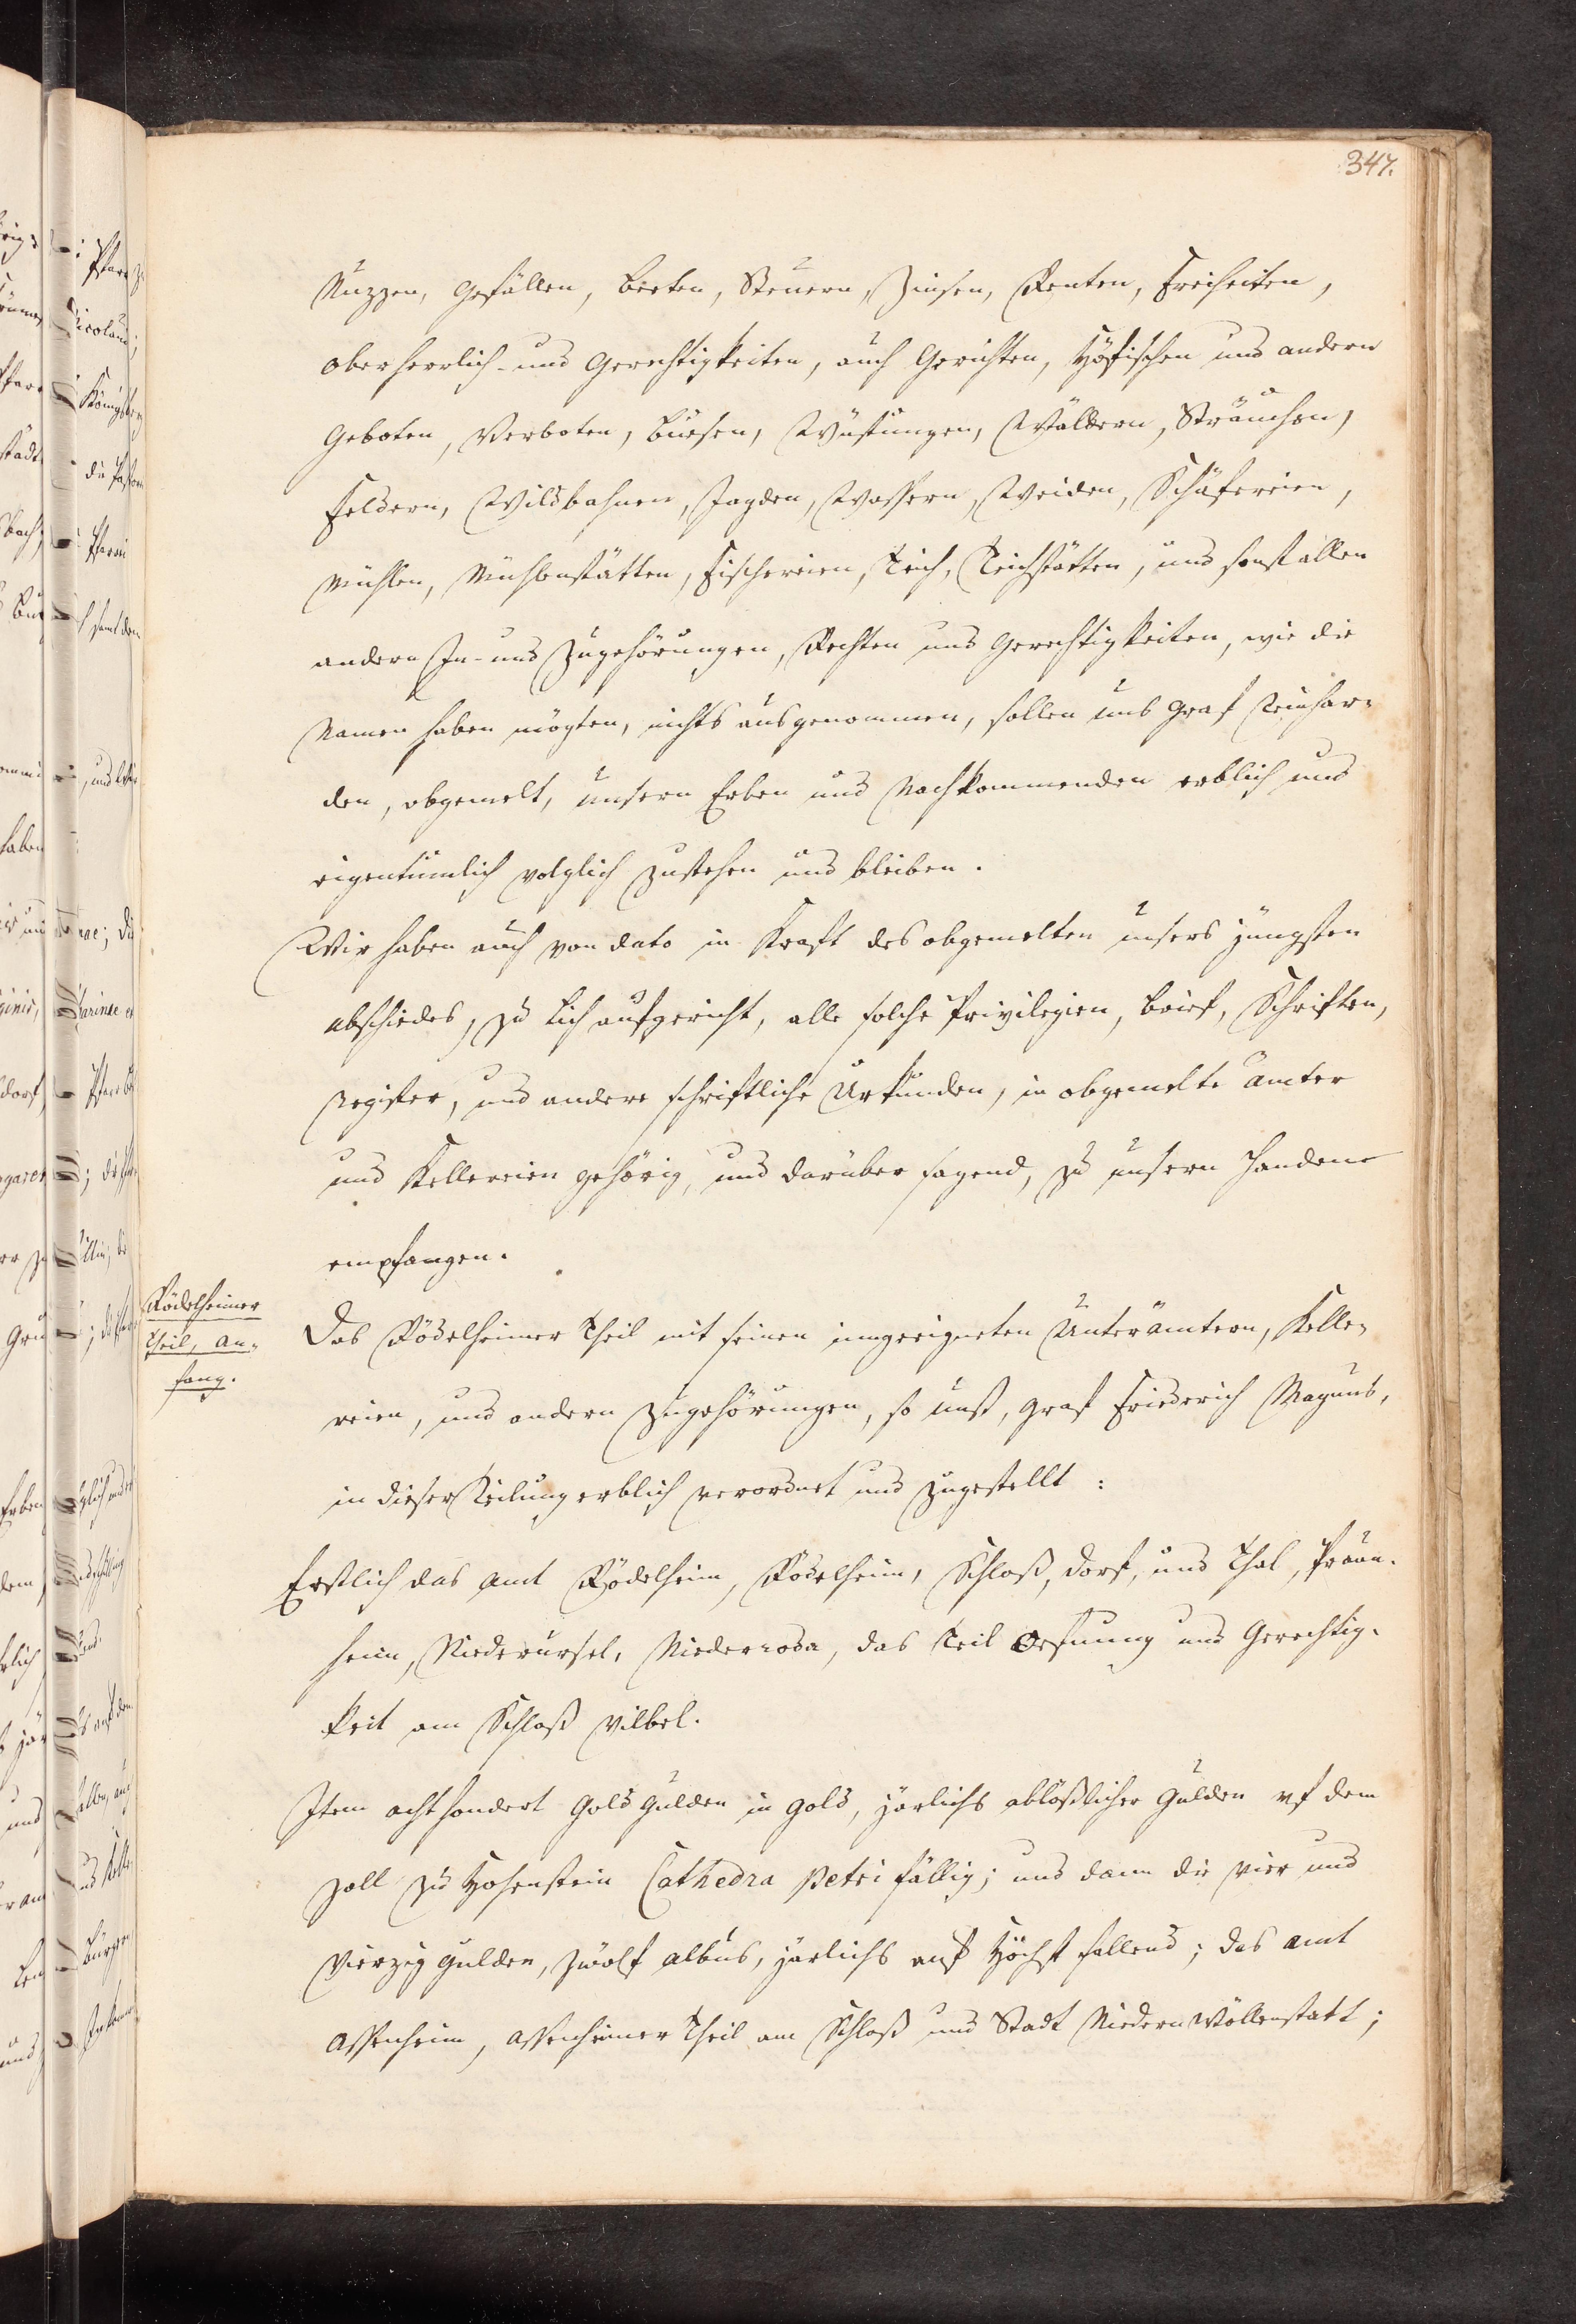 347.
Nuzzen, Gefällen, Beeten, Steuern, Zinsen, Renten, Freiheiten,
Oberherrlich- und Gerechtigkeiten, auch Gerichten, Höfischen und andern
Geboten, Verboten, Buesen, Wüstungen, Wäldern, Sträuchen,
Feldern, Wildbahnen, Jagden, Wassern, Weiden, Schäfereien,
Mühlen, Mühlenstätten, Fischereien, Teich, Teichstätten, und sonst allen
andern In- und Zugehörungen, Rechten und Gerechtigkeiten, wie die
Namen haben mögten, nichts ausgenommen, sollen uns Graf Reinhar-
den, obgemelt, unsern Erben und Nachkommenden erblich und
eigentümlich volglich zustehen und bleiben.
Wir haben auch von dato in Kraft des obgemelten unsers jüngsten
Abschiedes, zu Lich aufgericht, alle solche Privilegien, Brief, Schriften,
Register, und andere schriftliche Urkunden, in obgemelte Ämter
und Kellereien gehörig, und darüber sagend, zu unsern Handen
empfangen.
Rödelheimer
Theil, An-
fang.
Das Rödelheimer Theil mit seinen ingeeigneten Unterämtern, Kelle-
reien, und andern Zugehörungen, so unß, Graf Friederich Magnus,
in dieser Teilung erblich verordnet und zugestellt:
Erstlich das Amt Rödelheim, Rödelheim, Schloß, Dorf, und Thal, Praun-
heim, Niederursel, Niederroda, das Teil Oefnung und Gerechtig-
keit am Schloß Vilbel.
Item acht hondert Gold Gulden in Gold, järlichs ablößlicher Gulden uf dem
Zoll zu Hohenstein Cathedra Petri fällig; und dann die vier und
Vierzig Gulden, zwölf Albus, järlichs auf Höchst fallend; das Amt
Assenheim, Assenheimer Theil am Schloß und Stadt Niedern Wöllenstatt;